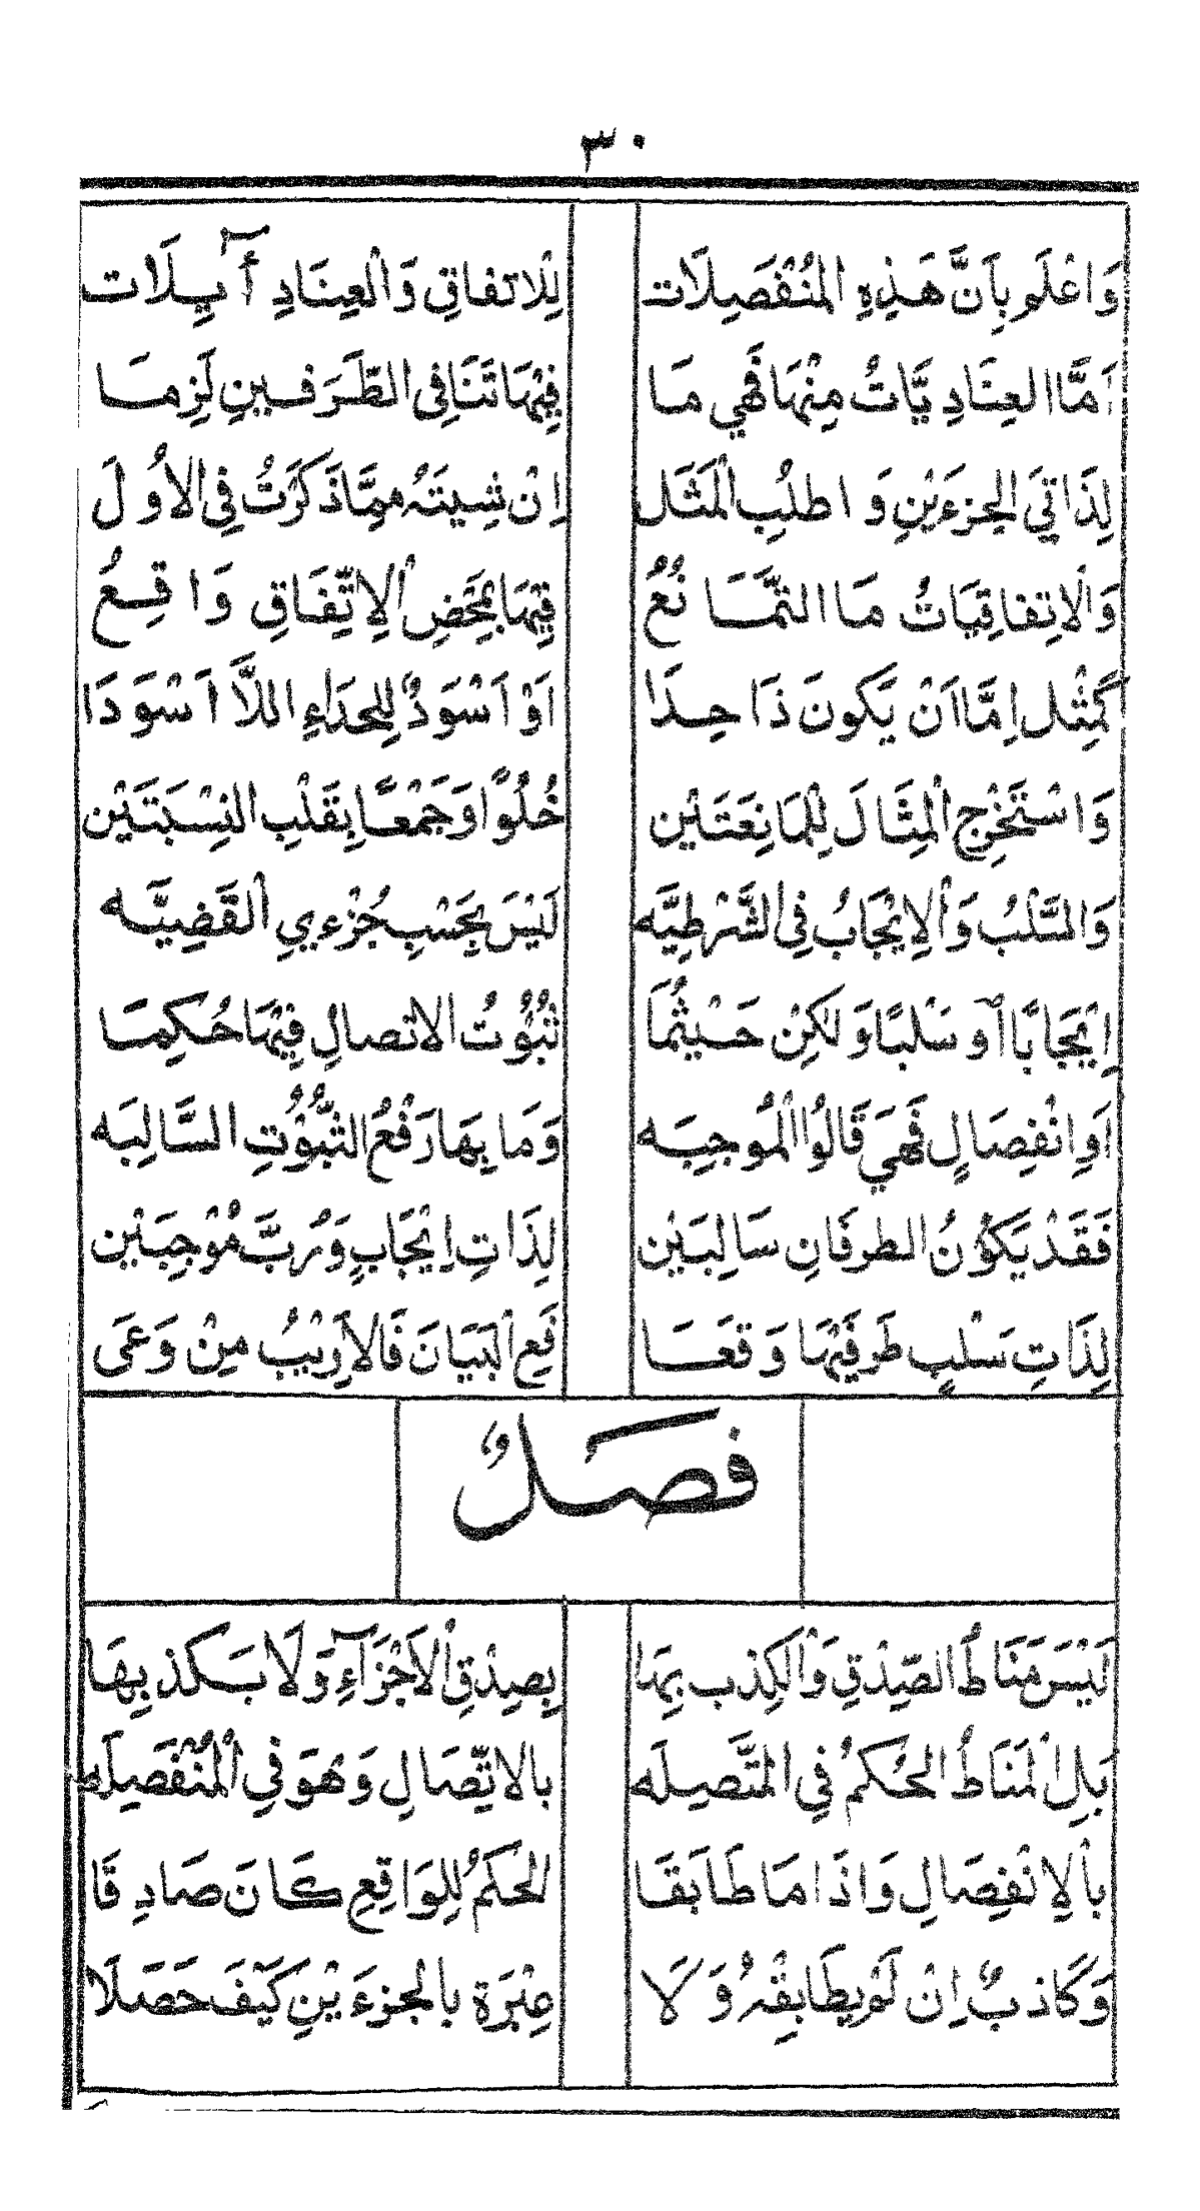 ٣٠
وَاعْلَم بِاَنَّ هَذِهِ المُنْفَصِلَات لِلاتفاقِ وَالعِنَادِ آيِلَات
اَمَّا العِنَادِيَّاتُ مِنْهَا فَهي مَا فِيْهَا تَنَافِى الطَّرَفَينِ لَزِمَا
لِذَاتِيَ الجزءَيْنِ وَاطلُبِ الْمَثَل اِنْ شِيتَهُ مِمَّا ذَكَرْتُ فِي الاُوَل
وَالاتِفاقِيَاتُ مَا التَّمَانُعُ فِيْهَا بِمَحْضِ الاِتِّفَاقِ وَاقِعُ
كَمِثْلِ اِمَّا اَنْ يَكونَ ذَا حِذَا اَوْ اَسْوَدٌ لِلحذَاءِ اللَّا اَسْوَدَا
وَاسْتَخْرِجِ الْمِثَالَ لِلْمَانِعَتَيْن خُلُوًا وَجَمْعًا بِقَلْبِ النِسْبَتَيْن
وَالسَّلْبُ وَالاِيْجَابُ فِي الشَّرْطِيَّه لَيْسَ بِحَسْبِ جُزْءيِ القَضِيَّه
اِيْجَابًا اَو سَلْبًا وَلكِنْ حَيْثُمَا ثُبُوْتُ الاتصالِ فِيْهَا حُكِمَا
اَوِ انْفِصَالٍ فَهَيَ قَالُوا الْمُوجِبَه وَمَا بِهَا رَفْعُ الثُّبُوْتِ السَّالِبَه
فَقَدْ يَكُوْنُ الطرفَانِ سَالِبَيْن لِذَاتِ اِيْجَابٍ وَرُبَّ مُوْجِبَيْن
لِذَاتِ سَلْبٍ طَرفَيْهَا وَقعَا فَعِ الْبَيَانَ فَالاَرِيْبُ مِنْ وَعَى
فَصْلٌ
لَيْسَ مَنَاطُ الصِّدْقِ وَالْكِذب بِمَا بِصِدْقِ الاَجْزَآءِ وَلَا بَكذبِهَا
بَلِ الْمَنَاطُ الحُكمُ فِي المتَّصِلَه بالاتِّصَالِ وَهْوَ فِي الْمُنْفَصِلَه
بالاِنْفِصَالِ وَاذَا مَا طَابَقَا الحُكمُ لِلوَاقِعِ كَانَ صَادِقَا
وَكَاذبٌ اِنْ لَمْ يطَابِقْهُ وَلَا عِبْرَة بالجزءَيْنِ كَيْفَ حَصَلَا